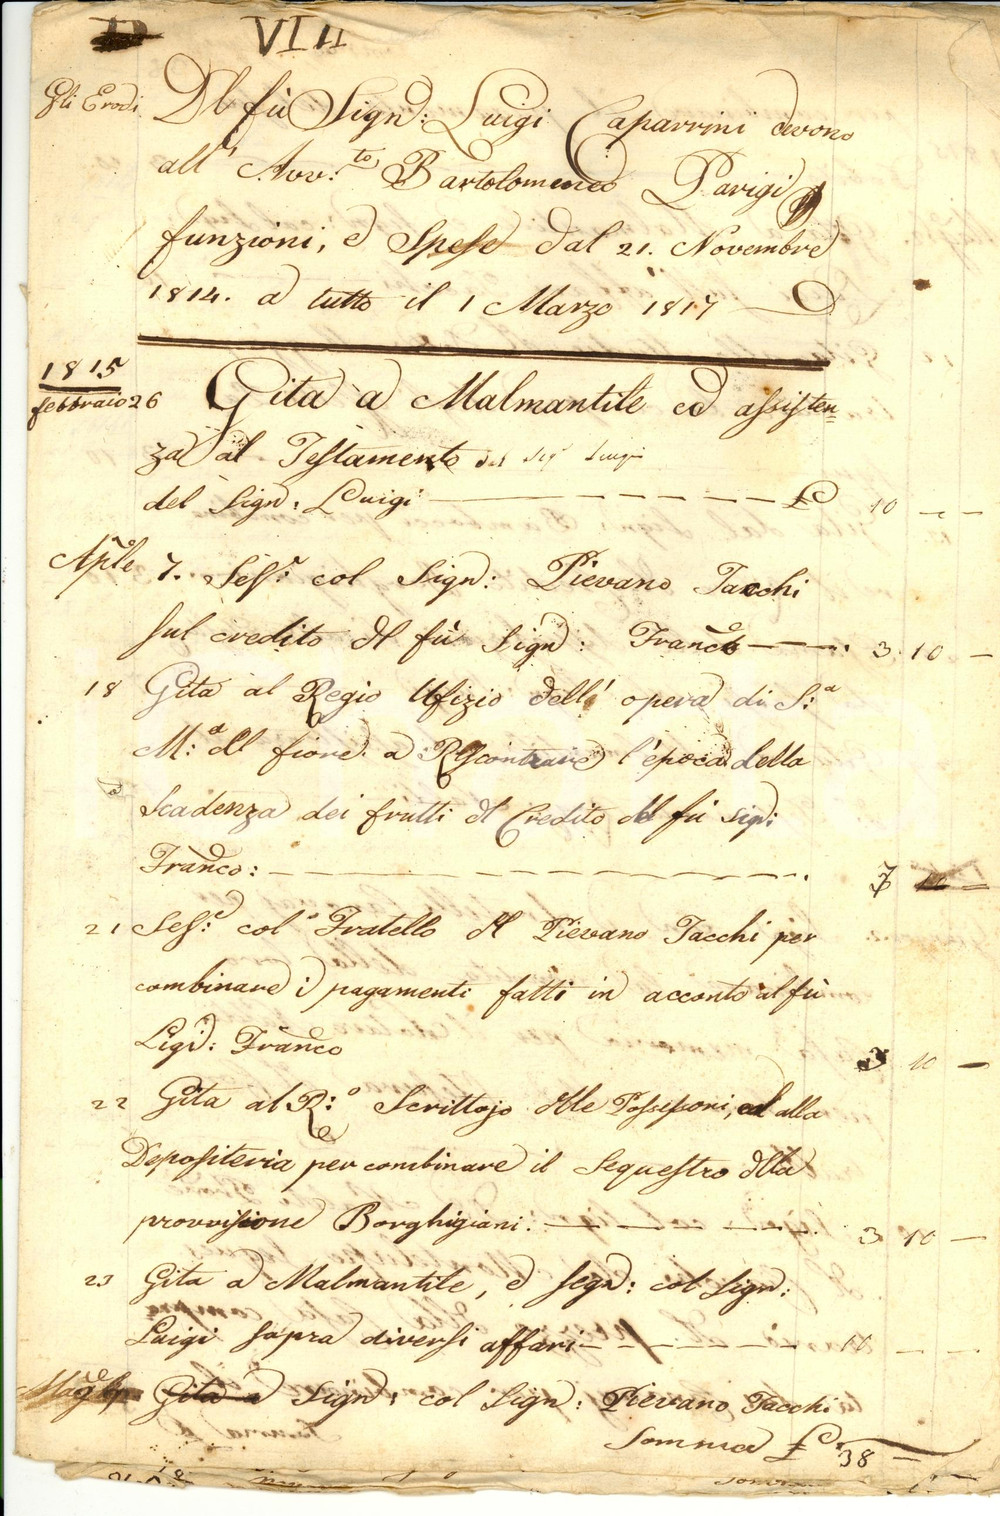 VIII
Gli Eredi Del fù Sign: Luigi Caparrini devono
all' Avv:to Bartolomeo Parigi p
funzioni, e Spese dal 21. Novembre
1814. a tutto il 1 Marzo 1817
1815
febbraio 26 Gita a Malmantile ed assisten=
za al Testamento del Sig Luigi
del Sign: Luigi £ 10 - -
Aprile 7. Sess: col Sign: Pievano Tacchi
sul credito del fù Sign: Franco 3 10 -
18 Gita al Regio Ufizio dell' opera di S:a
M:a del fiore a Riscontrare l'epoca della
Scadenza dei frutti del Credito del fù sign:
Franco: 7 -
21 Sess:e col Fratello del Pievano Tacchi per
combinare i pagamenti fatti in acconto al fù
Sign: Franco 3 10 -
22 Gita al R:o Scrittojo delle Possessioni, ed alla
Depositeria per combinare il Sequestro della
provvisione Borghigiani: 3 10 -
23 Gita a Malmantile, e segn: col Sign:
Luigi sopra diversi affari 10 - -
Gita a Sign: col Sign: Pievano Tacchi
Somma £ 38 - -